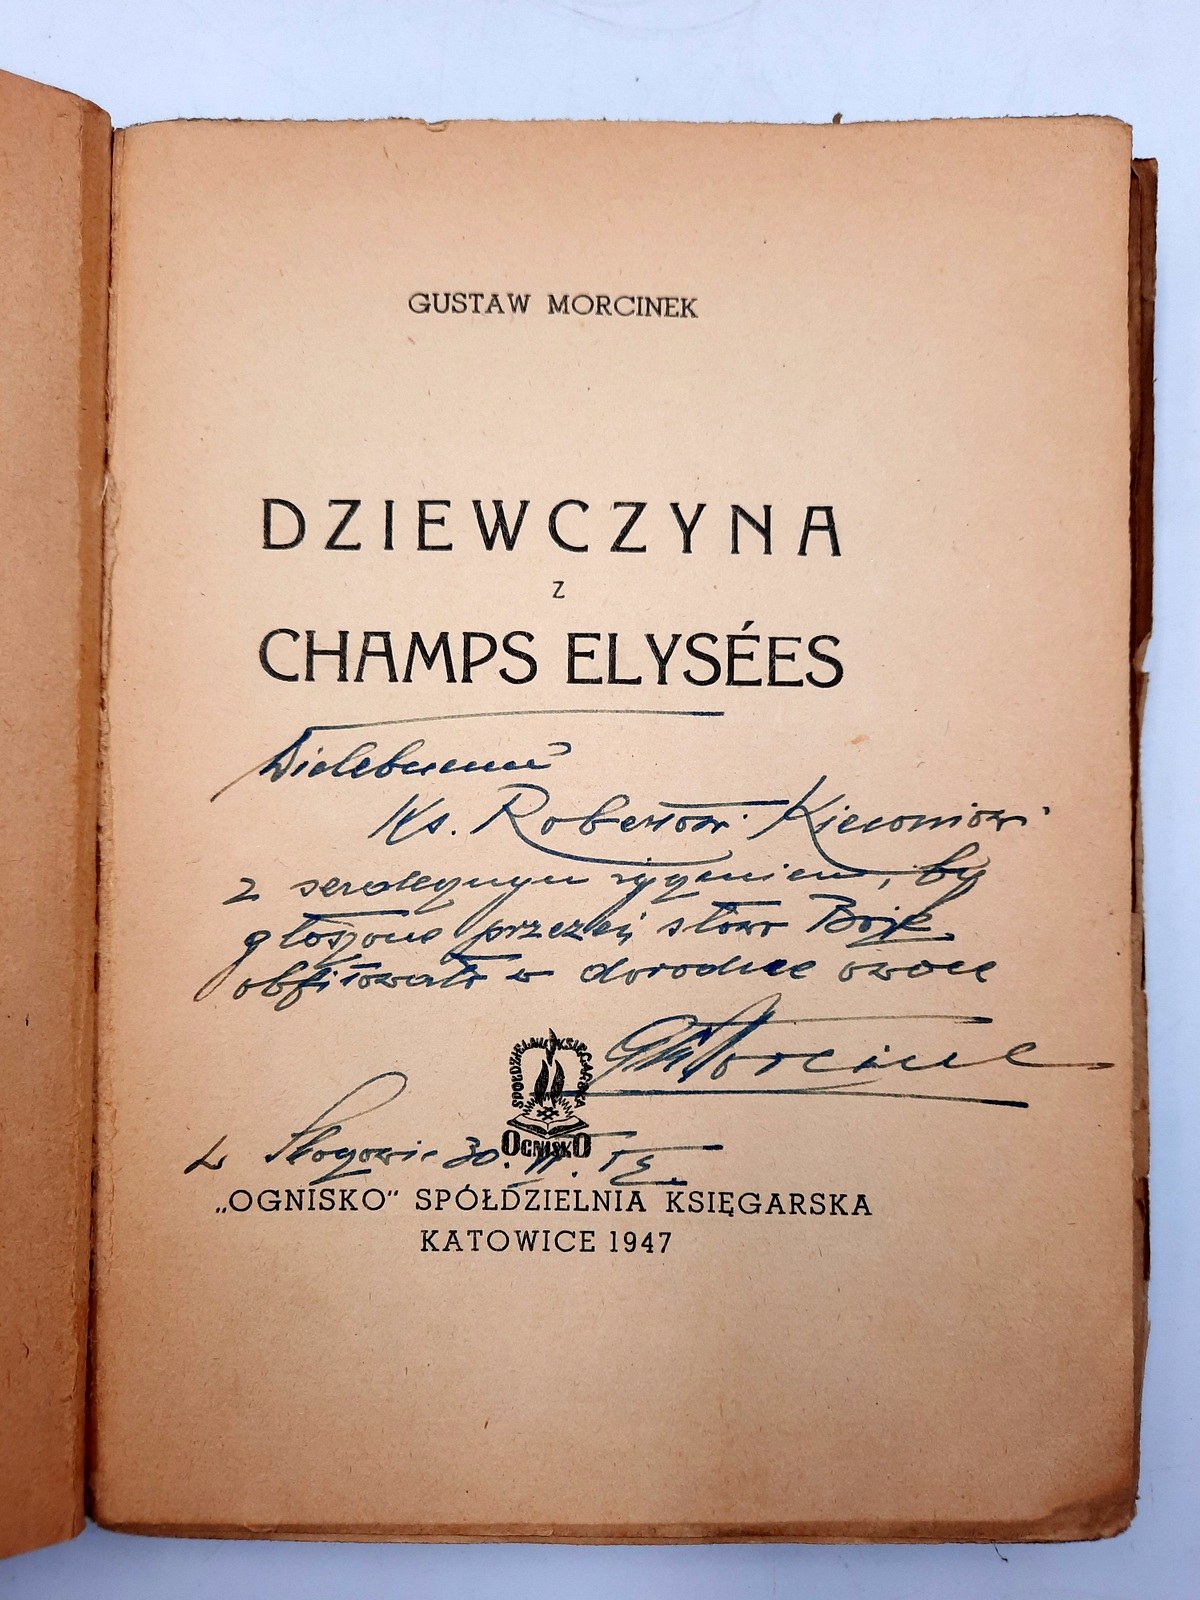 GUSTAW MORCINEK
DZIEWCZYNA
Z
CHAMPS ELYSÉES
Wielebnemu
Ks. Robertowi
z serdecznym życzeniem, by
głoszone przezeń słowo Boże
obfitowało w dorodne owoce
GMorcinek
SPÓŁDZIELNIA KSIĘGARSKA
OGNISKO
W Skoczowie 30.
„OGNISKO” SPÓŁDZIELNIA KSIĘGARSKA
KATOWICE 1947